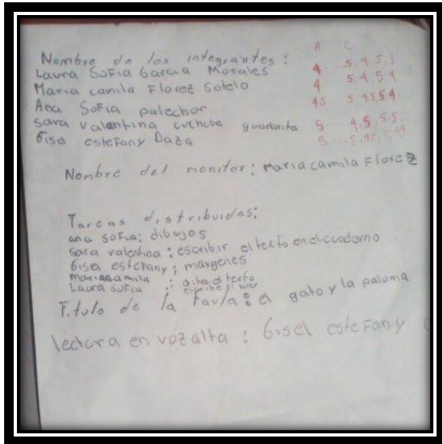 Nombre de los integrantes : A C
Laura Sofia Garcia Morales 4 5,4,5,3
Maria camila Florez Sotelo 4 5,4,5,4
Ana Sofia palechor 45 5,45,5,4
Sara Valentina cuchobe guaranita 5 4,5,5,5
Gisel estefany Daza 5
Nombre del monitor : Maria camila Florez
Tareas distribuidas:
ana Sofia: dibujos
sara valentina : escribir el texto en el cuaderno
Gisel estefany ; margenes
maria camila : dicta el texto
Laura Sofia :
Titulo de la favula : el gato y la paloma
lectura en voz alta : Gisel estefany